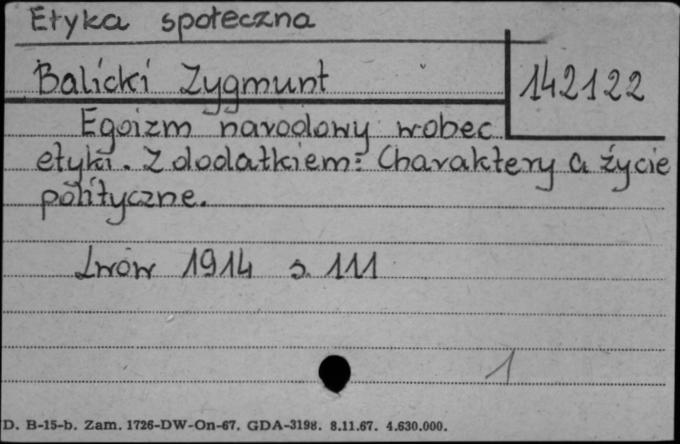 Etyka społeczna
Balicki Zygmunt
142122
Egoizm narodowy wobec
etyki. Z dodatkiem: Charaktery a życie
polityczne.
Lwów 1914 s. 111
1
D. B-15-b. Zam. 1726-DW-On-67. GDA-3198. 8.11.67. 4.630.000.